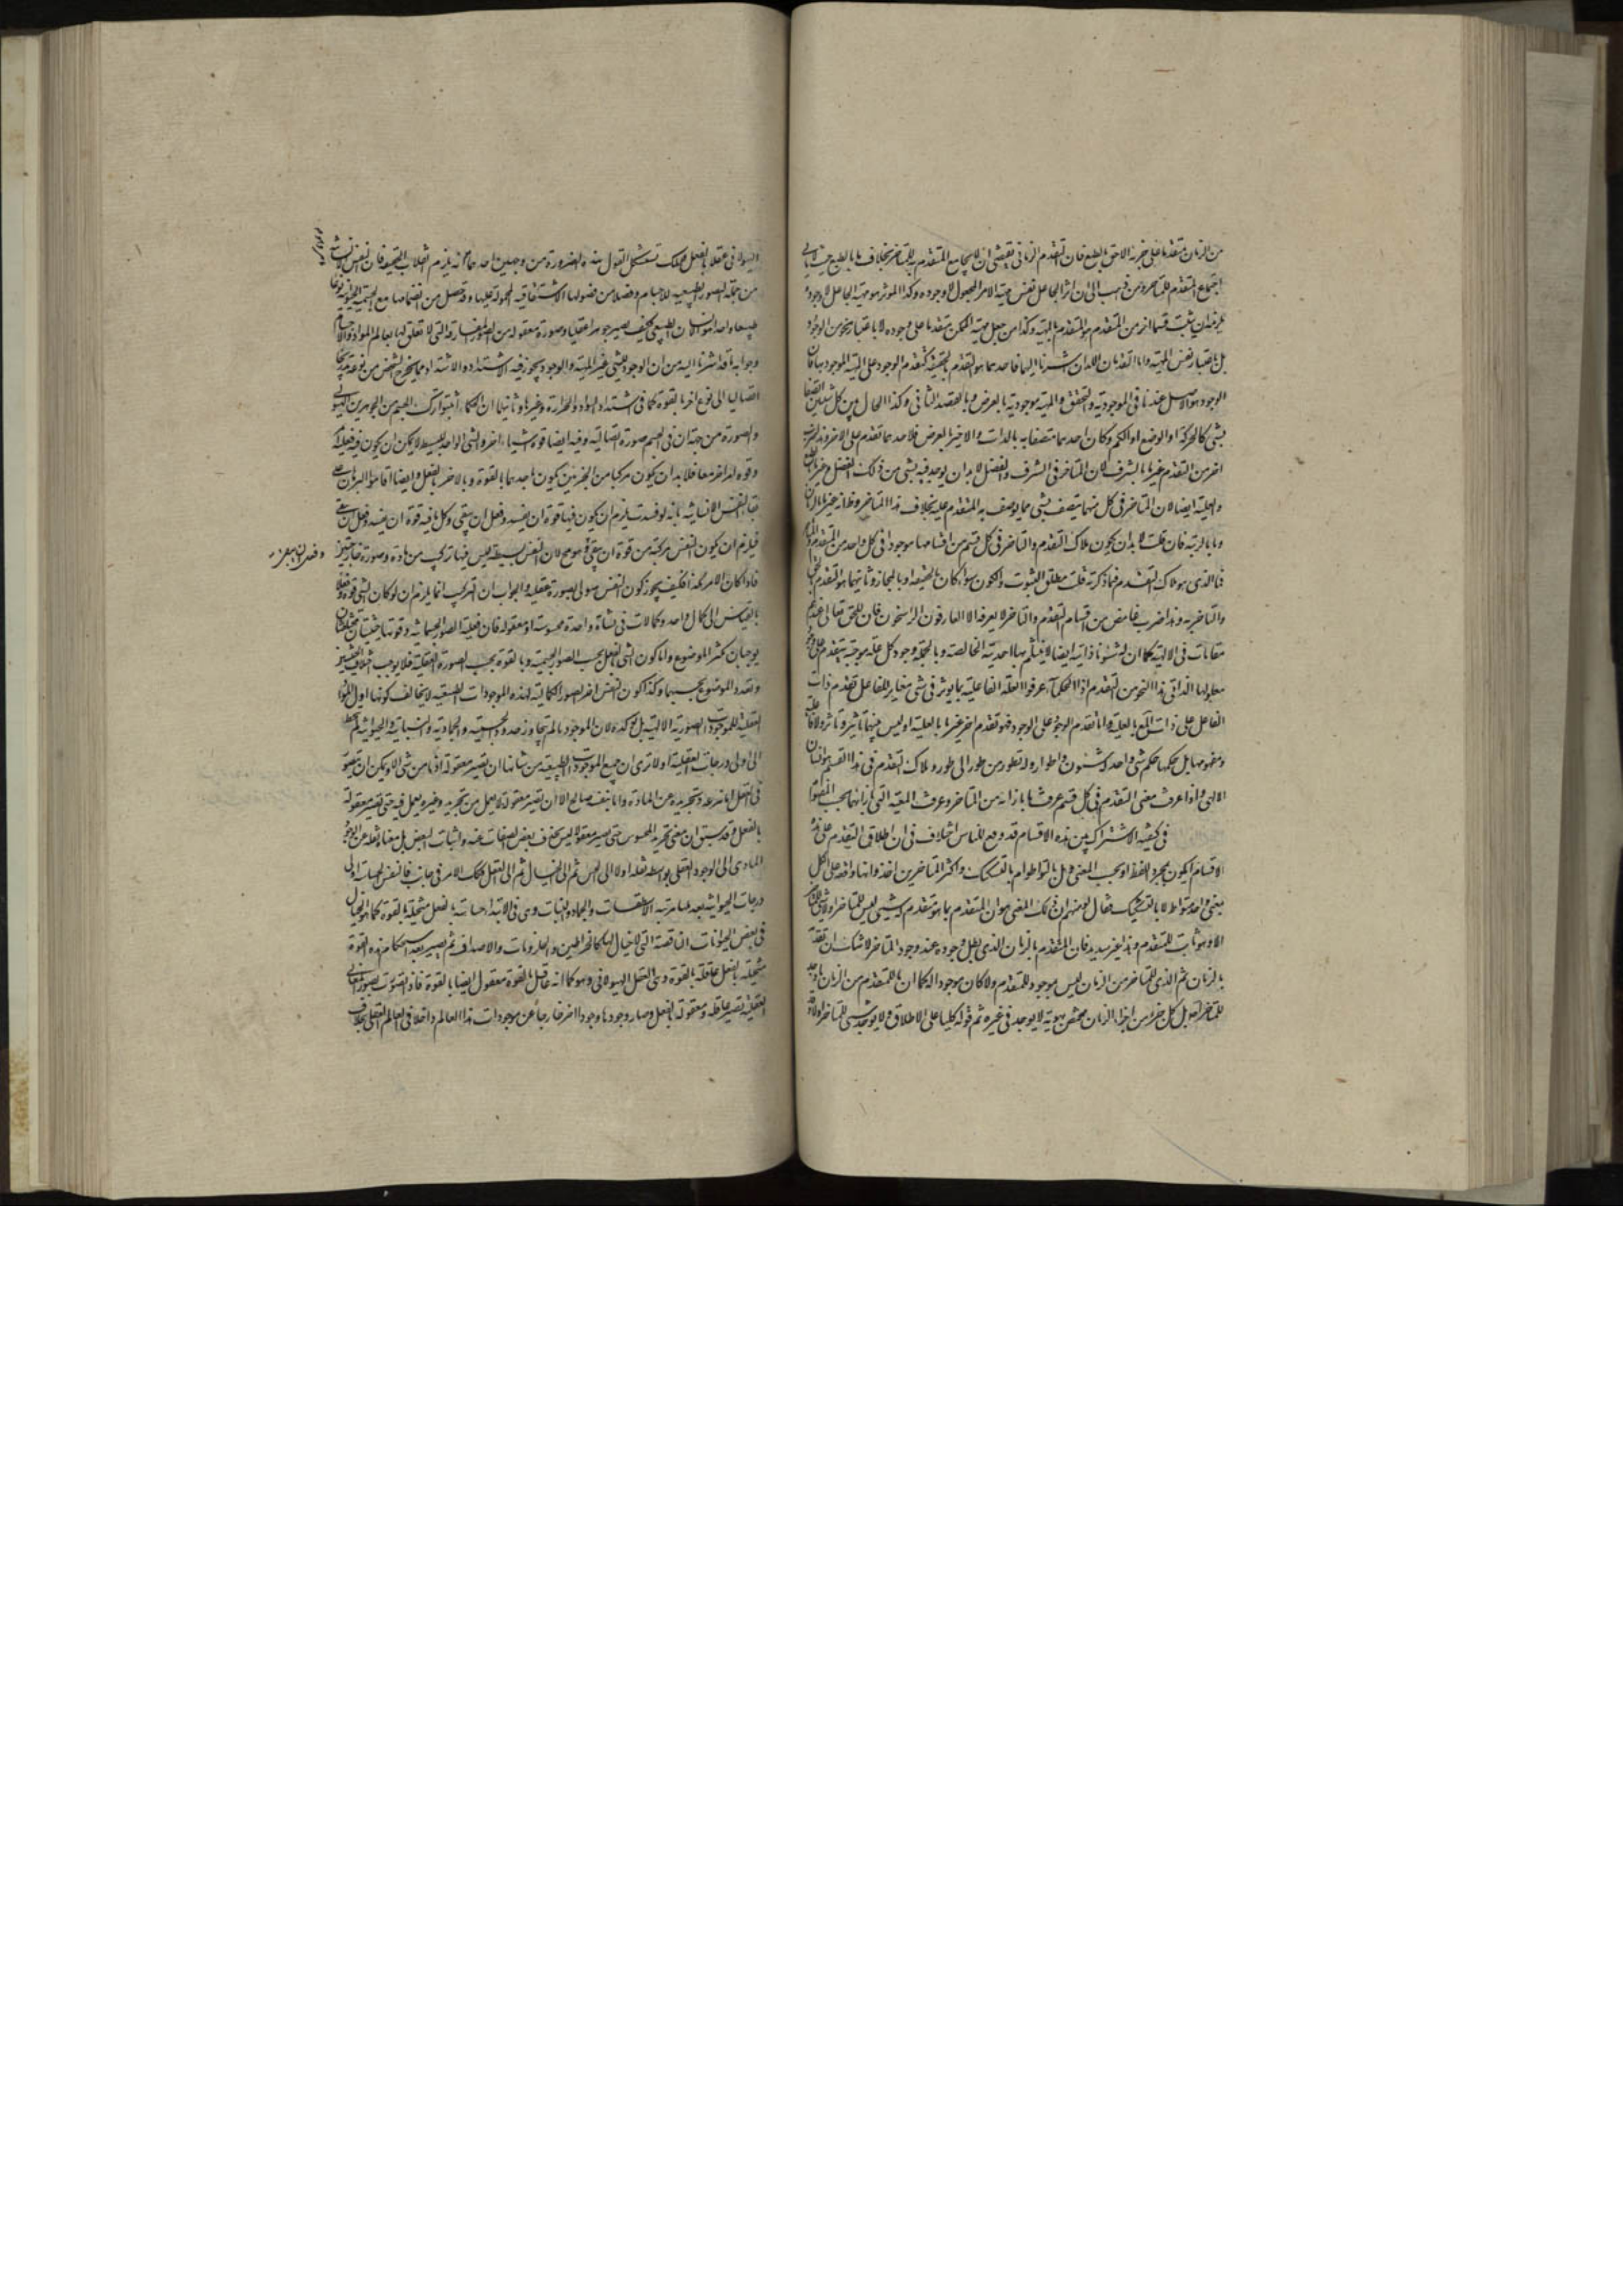 من الزمان متقدما على جزئه الاحق بالطبع فان التقدم الزماني يقتضي ان لا يجامع المتقدم به للمتاخر بخلاف ما بالطبع حيث لا يابى
اجتماع المتقدم للمتاخر ومن ذهب الى ان اثر الجاعل نفس مهية الامر المجعول لا وجوده وكذا الموثر هو مهية الجاعل لا وجوده
يلزمه ان يثبت قسما اخر من التقدم هو التقدم بالمهية وكذا من جعل مهية الممكن متقدما على وجوده لا باعتبار نحو من الوجود
بل باعتبار نفس المهية واما التقدمان اللذان اشرنا اليهما فاحدهما هو التقدم بالحقيقة كتقدم الوجود على المهية الموجودة بها فان
الوجود هو الاصل عندنا في الموجودية والتحقق والمهية موجودية بالعرض وبالقصد الثاني وكذا الحال بين كل شيئين اتصفا
بشي كالحركة او الوضع او الكم وكان احدهما متصفا به بالذات والاخر بالعرض فلاحدهما تقدم على الاخر وهذا ضرب
اخر من التقدم غير ما بالشرف لان المتاخر في الشرف والفضل لا بد ان يوجد فيه شي من ذلك الفضل وغير ما بالطبع
والعلية ايضا لان المتاخر في كل منهما يتصف بشي مما يوصف به المتقدم عليه بخلاف هذا المتاخر وظاهر انه غير ما بالزمان
وما بالرتبة فان قلت لا بد ان يكون ملاك التقدم والتاخر في كل قسم من اقسامهما موجودا في كل واحد من المتقدم والمتاخر
فما الذي هو ملاك التقدم فيما ذكرته قلت مطلق الثبوت والكون سواء كان بالحقيقة او بالمجاز وثانيهما هو التقدم بالحق
والتاخر به وهذا ضرب غامض من اقسام التقدم والتاخر لا يعرفه الا العارفون الراسخون فان للحق تعالى عندهم
مقامات في الالهية كما ان له شئونا ذاتية ايضا لا ينثلم بها احديته الخالصة وبالجملة وجود كل علة موجبة يتقدم على وجود
معلولها الذاتي هذا النحو من التقدم اذ الحكماء عرفوا العلة الفاعلية بما يوثر في شي مغاير للفاعل فتقدم ذات
الفاعل على ذات المع بالعلية واما تقدم الوجود على الوجود فهو تقدم اخر غير ما بالعلية اذ ليس بينهما تاثير وتاثر ولا فاعلية
ومفعولية بل حكمهما حكم شي واحد له شئون واطوار وله تطور من طور الى طور وملاك التقدم في هذا القسم هو الشان
الالهي واذا عرفت معنى التقدم في كل قسم عرفت ما بازائه من المتاخر وعرفت المعية التي بازائهما بحسب المفهوم
في كيفية الاشتراك بين هذه الاقسام قد وقع للناس اختلاف في ان اطلاق التقدم على هذه
الاقسام ايكون بمجرد اللفظ او بحسب المعنى وهل بالتواطؤ ام بالتشكيك واكثر المتاخرين اخذوا انها واقعة على الكل
بمعنى واحد متواط لا بالتشكيك فقال بعضهم ان ذلك المعنى هو ان المتقدم بما هو متقدم له شي ليس للمتاخر ولا شي للمتاخر
الا وهو ثابت للمتقدم وهذا غير سديد فان المتقدم بالزمان الذي بطل وجوده عند وجود المتاخر لا شك ان تقدمه
بالزمان ثم الذي للمتاخر من الزمان ليس موجودا للمتقدم ولا كان موجودا له كما ان ما للمتقدم من الزمان ما وجد
للمتاخر اصلا بل كل جزء من اجزاء الزمان مختص بهوية لا يوجد في غيره ثم قوله كليا على الاطلاق ولا يوجد شي للمتاخر الا وهو
الهيولاني عقلا بالفعل ولعلك تستشكل القول بهذه الصيرورة من وجهين احدهما انه يلزم انقلاب الحقيقة فان النفس الانسانية
من جملة الصور الطبيعية للاجسام وفصل من فصولها الاشتقاقية المحمولة عليها وقد حصل من انضمامها مع الجسمية الحيوانية نوعا
طبيعيا واحدا هو الانسان الطبيعي فكيف يصير جوهرا عقليا وصورة معقولة من الصور المفارقة التي لا تعلق لها بعالم المواد والاجسام
وجوابه ما قد اشرنا اليه من ان الوجود للشي غير المهية والوجود يجوز فيه الاشتداد والاشتداد مما يخرج الشخص من نوعه تدريجا
اتصاليا الى نوع اخر بالقوة كما في اشتداد السواد والحرارة وغيرها وثانيهما ان الحكماء اثبتوا تركب الجسم من الجوهرين الهيولى
والصورة من جهة ان في الجسم صورة اتصالية وفيه ايضا قوة اشياء اخر والشي الواحد البسيط لا يمكن ان يكون فيه فعلية
وقوة لامر اخر معا فلا بد ان يكون مركبا من الجزئين يكون باحدهما بالقوة وبالاخر بالفعل وايضا اقاموا البرهان على
بقاء النفس الانسانية بانه لو فسدت يلزم ان يكون فيها قوة ان يفسد وفعل ان يبقى وكل ما فيه قوة ان يفسد وفعل ان يبقى
فيلزم ان يكون النفس مركبة من قوة ان يبقى وهو مح لان النفس بسيطة ليس فيها تركيب من مادة وصورة خارجيتين
وفعل ان يبقى
فاذا كان الامر هكذا فكيف يجوز كون النفس هيولى لصورة عقلية والجواب ان التركيب انما يلزم ان لو كان الشي قوة وفعلا
بالقياس الى كمال واحد وكمالات في نشاة واحدة محسوسة او معقولة فان فعلية الصور الجسمانية وقوتها حيثيتان مختلفتان
يوجبان تكثر الموضوع واما كون الشي بالفعل بحسب الصور الجسمية وبالقوة بحسب الصورة العقلية فلا يوجب اختلاف الحيثيتين
وتعدد الموضوع بحسبهما وكذا كون النفس اخر الصور الكمالية لهذه الموجودات الطبيعية لا يخالف كونها اول المواد
العقلية للموجودات الصورية الالهية بل يوكده لان الموجود ما لم يتجاوز حدود الجسمية والجمادية والنباتية والحيوانية لم يتخط
الى اولى درجات العقلية اولا ترى ان جميع الموجودات الطبيعية من شانها ان تصير معقولة اذ ما من شي الا ويمكن ان يتصور
في العقل اما بنزعه وتجريده عن المادة واما بنفسه صالح الا ان تصير معقولة لا بعمل من تجريد وغيره يعمل فيه حتى تصير معقولة
بالفعل وقد سبق ان معنى تجريد المحسوس حتى يصير معقولا ليس بحذف بعض الصفات عنه واثبات البعض بل معناه نقله عن الوجود
المادي الى الوجود العقلي بواسطة نقله اولا الى الحس ثم الى الخيال ثم الى العقل فكذلك الامر في جانب النفس الحساسة اولى
درجات الحيوانية بعد طي مرتبة الاسطقسات والجماد والنبات وهي في الابتداء حساسة بالفعل متخيلة بالقوة كما هو الحال
في بعض الحيوانات الناقصة التي لا خيال لها كالخراطين والحلزونات والاصداف ثم يصير بعد استحكام هذه القوة
متخيلة بالفعل عاقلة بالقوة وهي العقل الهيولاني وهو كما انه عاقل بالقوة معقول ايضا بالقوة فاذا تصورت بصور المعاني
العقلية تصير عاقلة ومعقولة بالفعل وصار وجودها وجودا اخر خارجا عن موجودات هذا العالم داخلا في العالم العقلي بخلاف